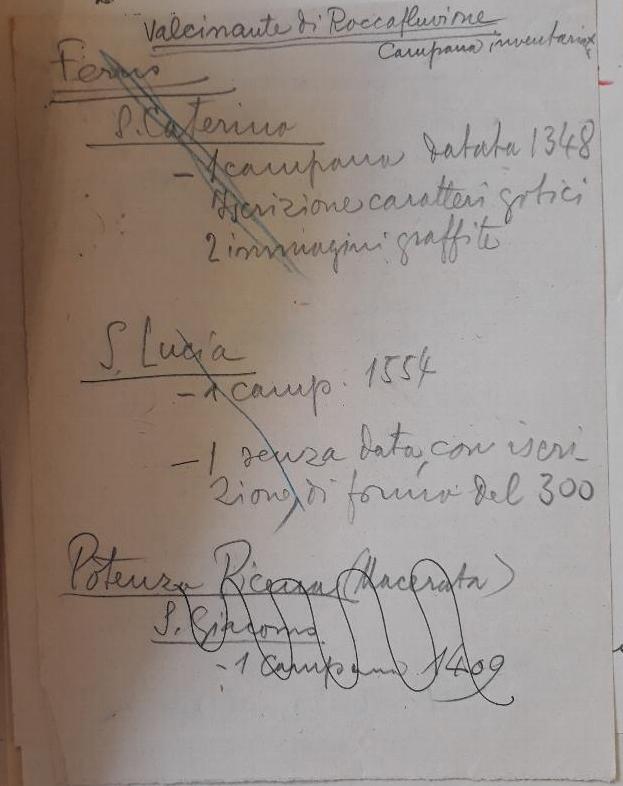 Valcinante di Roccafluvione
Campana inventaria
Fermo
S. Caterina
- 1 campana datata 1348
Iscrizione caratteri gotici
2 immagini graffite
S. Lucia
- 1 camp. 1554
- 1 senza data, con iscri-
zione, di forma del 300
Potenza Picena (Macerata)
S. Giacomo
- 1 campana 1409